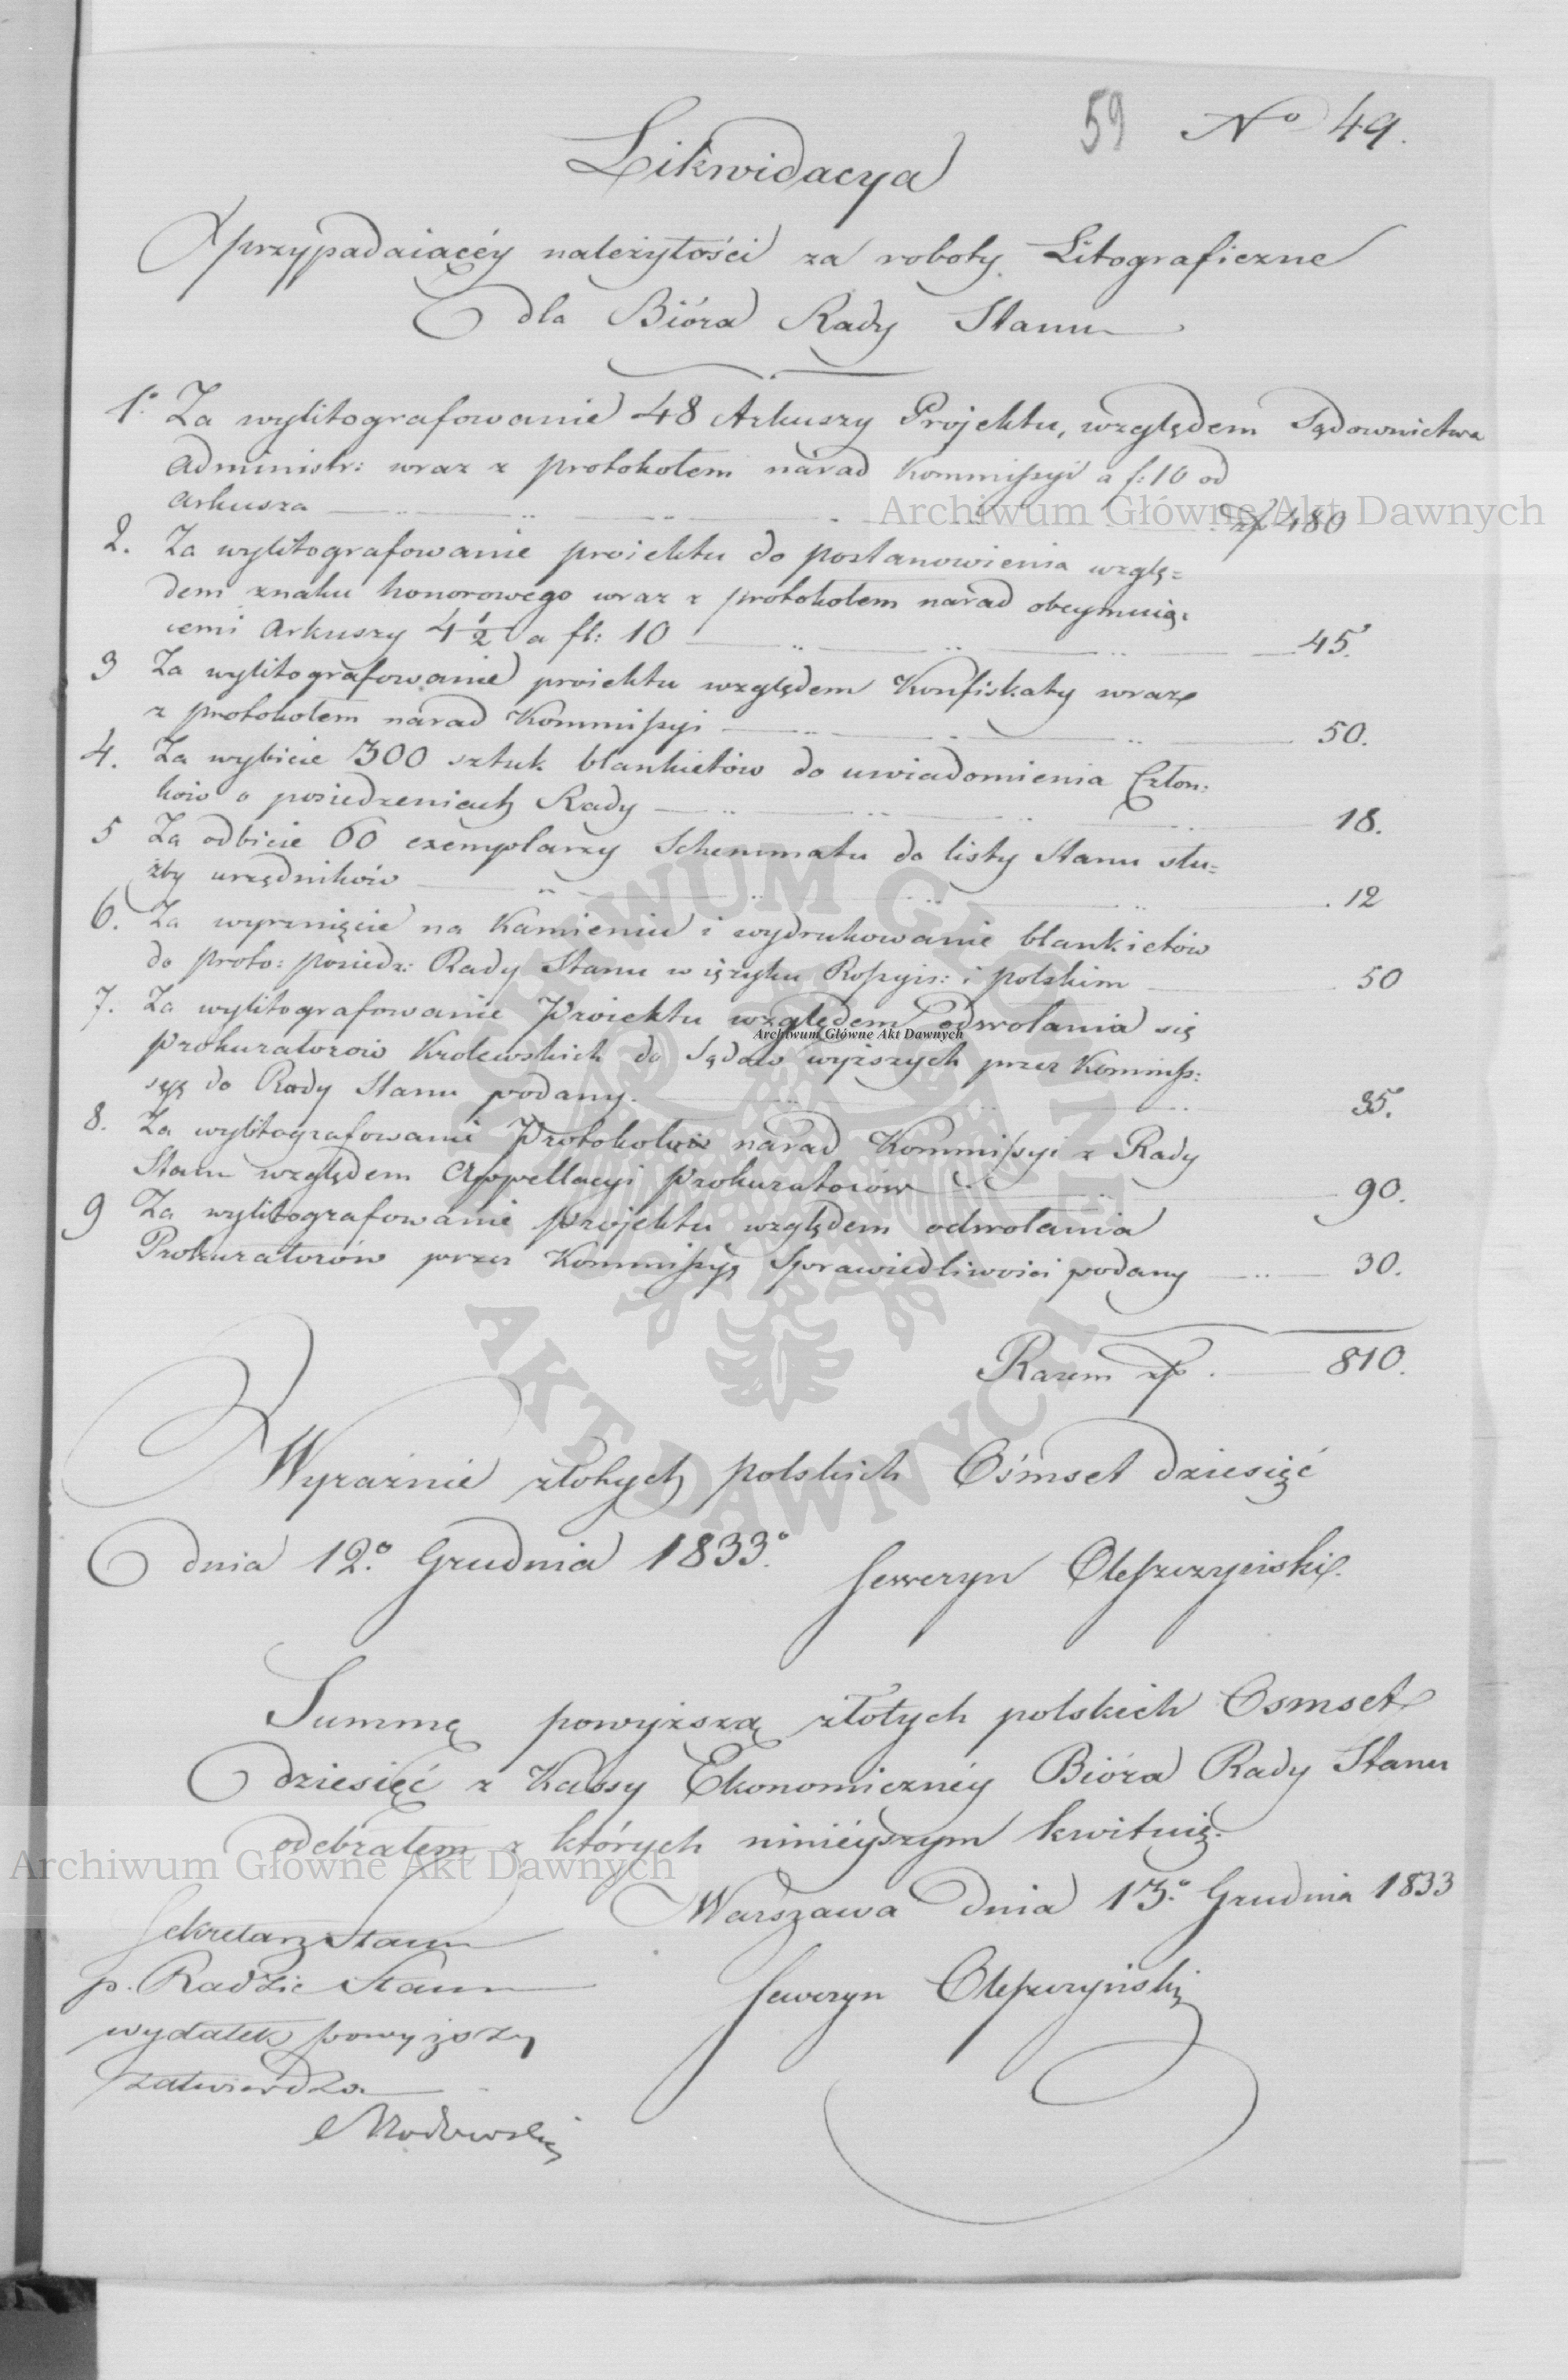 59 No 49.
Likwidacya
przypadaiącéy należytości za roboty Litograficzne
dla Bióra Rady Stanu
1o Za wylitografowanie 48 Arkuszy Projektu, względem Sądownictwa
Administr: wraz z protokołem narad Kommissyi a f: 10 od
Arkusza zł 480
2. Za wylitografowanie proiektu do postanowienia wzglę=
dem znaku honorowego wraz z protokołem narad obeymuią:
cemi Arkuszy 4 1/2 a fl: 10 45.
3 Za wylitografowanie proiektu względem Konfiskaty wraz
z protokołem narad Kommissyi 50.
4. Za wybicie 300 sztuk blankietów do uwiadomienia Człon:
ków o posiedzeniach Rady 18.
5 Za odbicie 60 exemplarzy Schemmatu do listy Stanu słu=
żby urzędników 12
6. Za wyrznięcie na Kamieniu i wydrukowanie blankietów
do proto: posiedz: Rady Stanu w ięzyku Rossyis: i polskim 50
7. Za wylitografowanie Proiektu względem odwołania się
Prokuratorów Krolewskich do Sądów wyższych przez Kommiss:
syą do Rady Stanu podany. 35.
8. Za wylitografowanie Protokołów narad Kommissyi z Rady
Stanu względem Appellacyi Prokuratorów 90.
9 Za wylitografowanie projektu względem odwołania
Prokuratorów przez Kommissyą Sprawiedliwości podany 30.
Razem zł. 810.
Wyraźnie złotych polskich Ośmset dziesięć
dnia 12o Grudnia 1833o.
Seweryn Oleszczyński.
Summę powyższą złotych polskich Osmset
dziesięć z Kassy Ekonomicznéy Bióra Rady Stanu
odebrałem z których ninieyszym kwituię.
Warszawa dnia 13o Grudnia 1833
Seweryn Oleszczyński
Sekretarz Stanu
p. Radzie Stanu
wydatek powyższy
zatwierdza
Archiwum Główne Akt Dawnych
Archiwum Główne Akt Dawnych
Archiwum Główne Akt Dawnych
ARCHIWUM GŁÓWNE AKT DAWNYCH